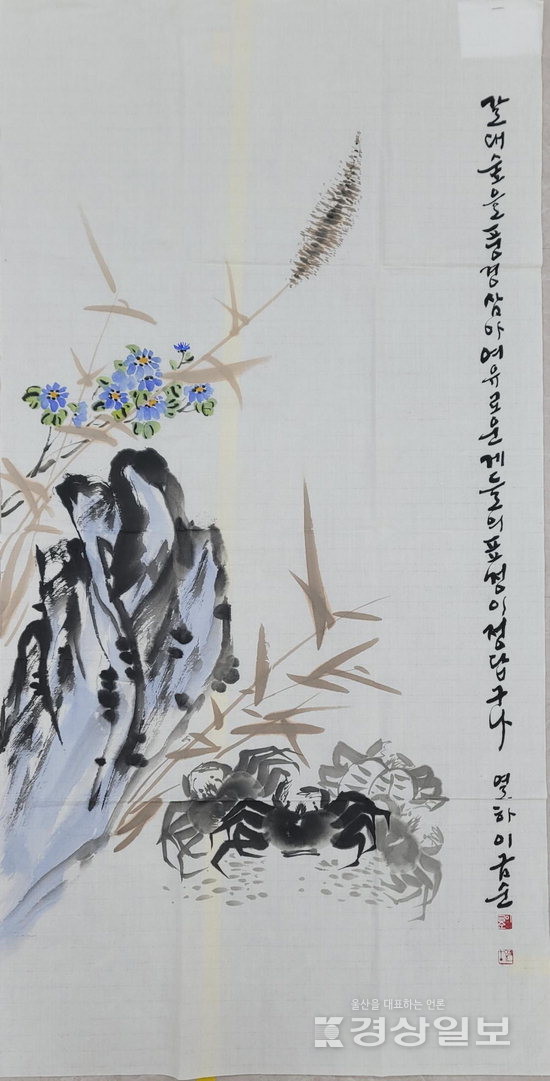 갈대숲을풍경삼아여유로운게들의표정이정답구나
열하이금순
울산을 대표하는 언론
경상일보